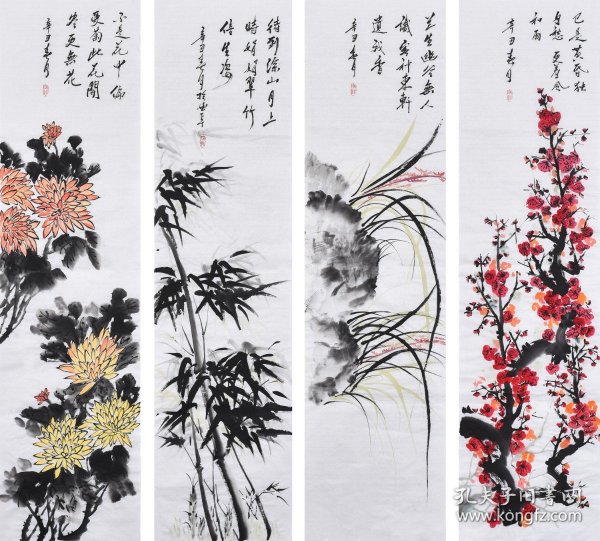 不是花中偏
爱菊此花開
尽更無花
辛丑春月
待到深山月上
時娟娟翠竹
倍生姿
辛丑春月於
兰生幽谷無人
識客种東軒
遺我香
辛丑春月
已是黄昏独
自愁更着风
和雨
辛丑春月
孔夫子旧书网
www.kongfz.com